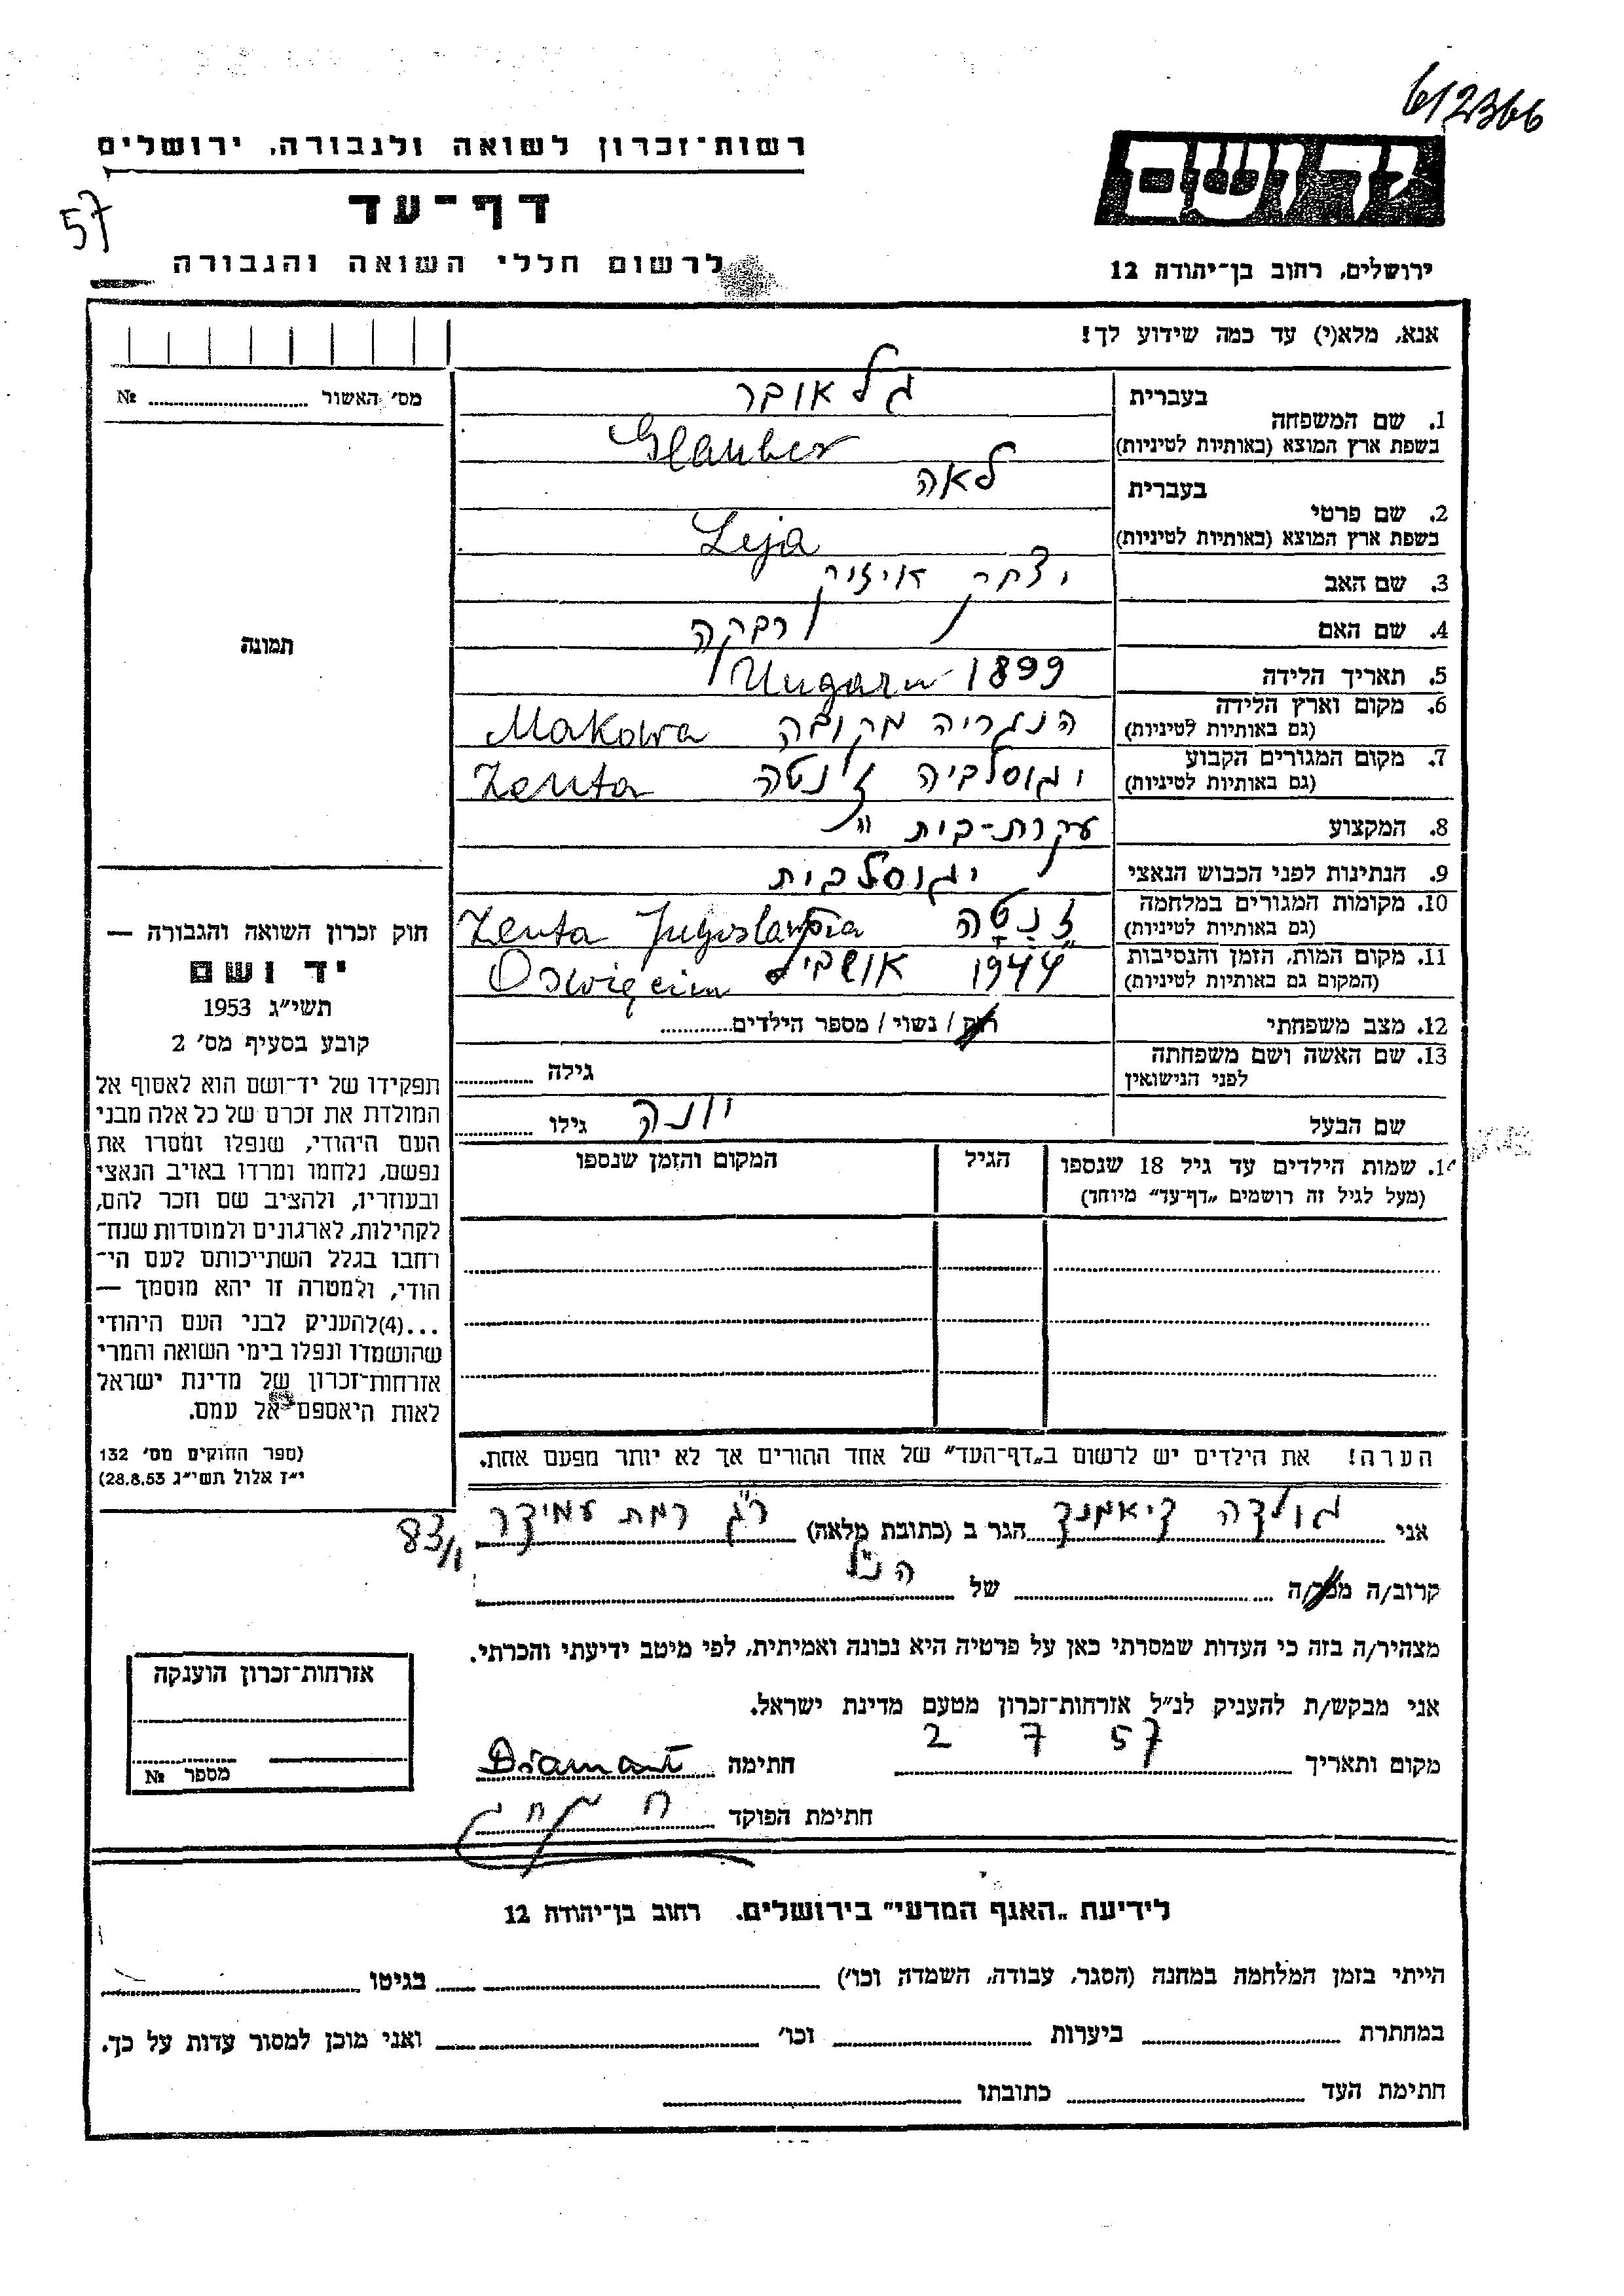 6/2366
יד ושם
רשות־זכרון לשואה ולגבורה, ירושלים
דף־עד
57
לרשום חללי השואה והגבורה
ירושלים, רחוב בן־יהודה 12
אנא, מלא(י) עד כמה שידוע לך!
מס׳ האשור № 
1. שם המשפחה בעברית גלאובר
בשפת ארץ המוצא (באותיות לטיניות) Glauber
2. שם פרטי בעברית לאה
בשפת ארץ המוצא (באותיות לטיניות) Leja
3. שם האב יצחק אייזיק
4. שם האם רבקה
5. תאריך הלידה 1899 Ungarn
6. מקום וארץ הלידה (גם באותיות לטיניות) הנגריה מקובה Makowa
7. מקום המגורים הקבוע (גם באותיות לטיניות) יגוסלביה ז'נטה Zenta
8. המקצוע עקרת-בית
9. הנתינות לפני הכבוש הנאצי יגוסלבית
10. מקומות המגורים במלחמה (גם באותיות לטיניות) זנטה Zenta Jugoslawia
11. מקום המות, הזמן והנסיבות (המקום גם באותיות לטיניות) 1944 Oswięcim
12. מצב משפחתי רוק / נשוי / מספר הילדים
13. שם האשה ושם משפחתה לפני הנישואין גילה
שם הבעל יונה גילו
14. שמות הילדים עד גיל 18 שנספו (מעל לגיל זה רושמים „דף־עד״ מיוחד) הגיל המקום והזמן שנספו
הערה! את הילדים יש לרשום ב„דף־העד״ של אחד ההורים אך לא יותר מפעם אחת.
תמונה
חוק זכרון השואה והגבורה —
יד ושם
תשי״ג 1953
קובע בסעיף מס׳ 2
תפקידו של יד־ושם הוא לאסוף אל
המולדת את זכרם של כל אלה מבני
העם היהודי, שנפלו ומסרו את
נפשם, נלחמו ומרדו באויב הנאצי
ובעוזריו, ולהציב שם וזכר להם,
לקהילות, לארגונים ולמוסדות שנח־
רחבו בגלל השתייכותם לעם הי־
הודי, ולמטרה זו יהא מוסמך —
...(4)להעניק לבני העם היהודי
שהושמדו ונפלו בימי השואה והמרי
אזרחות־זכרון של מדינת ישראל
לאות היאספם אל עמם.
(ספר החוקים מס׳ 132
י״ז אלול תשי״ג 28.8.53)
אני גולדה דיאמנד הגר ב (כתובת מלאה) ר"ג רמת עמידר 83/1
קרוב/ה מכר/ה של הנ"ל
מצהיר/ה בזה כי העדות שמסרתי כאן על פרטיה היא נכונה ואמיתית, לפי מיטב ידיעתי והכרתי.
אני מבקש/ת להעניק לנ״ל אזרחות־זכרון מטעם מדינת ישראל.
מקום ותאריך 2 7 57 חתימה Diamant
חתימת הפוקד
אזרחות־זכרון הוענקה
מספר №
לידיעת „האגף המדעי״ בירושלים. רחוב בן־יהודה 12
הייתי בזמן המלחמה במחנה (הסגר, עבודה, השמדה וכו׳) בגיטו
במחתרת ביערות וכו׳ ואני מוכן למסור עדות על כך.
חתימת העד כתובתו